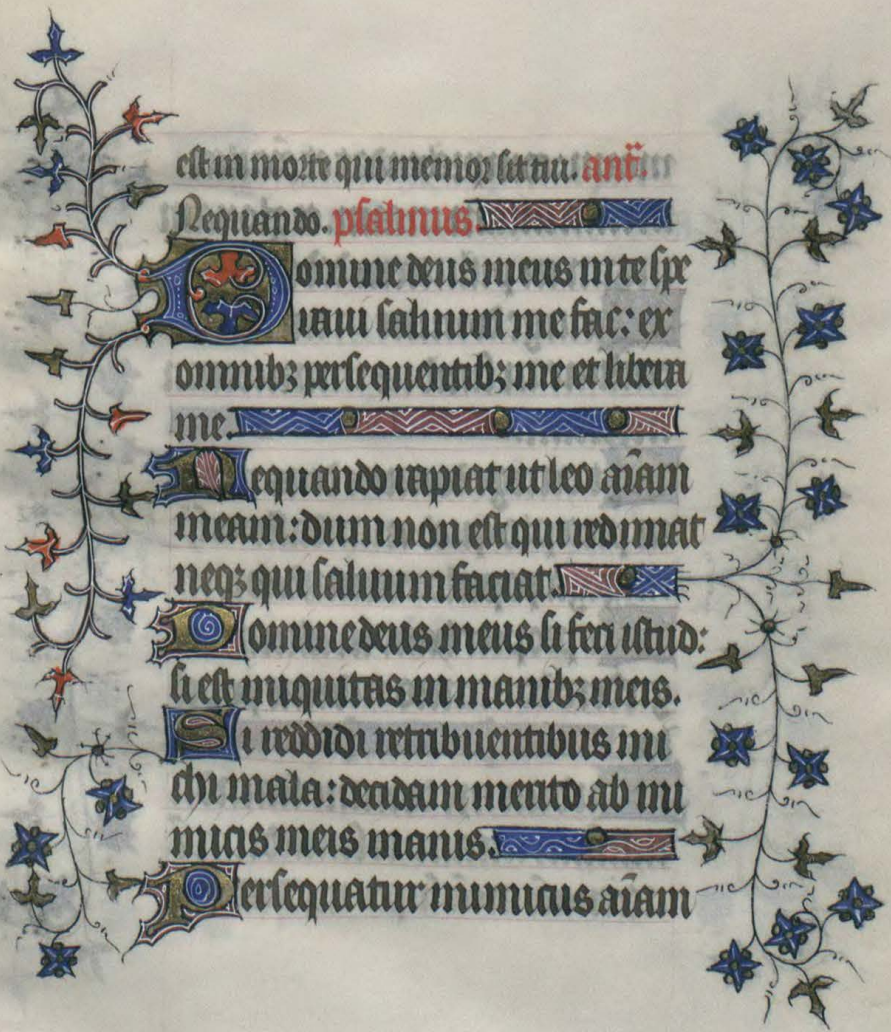 est in morte qui memor sit tui. ant̄.
Nequando. psalmus.
Domine deus meus in te spe
raui saluum me fac: ex
omnibꝫ persequentibꝫ me et libera
me.
Nequando rapiat ut leo aīam
meam: dum non est qui redimat
neqꝫ qui saluum faciat.
Domine deus meus si feci istud:
si est iniquitas in manibꝫ meis.
Si reddidi retribuentibus mi
chi mala: decidam merito ab ini
micis meis inanis.
Persequatur inimicus aīam